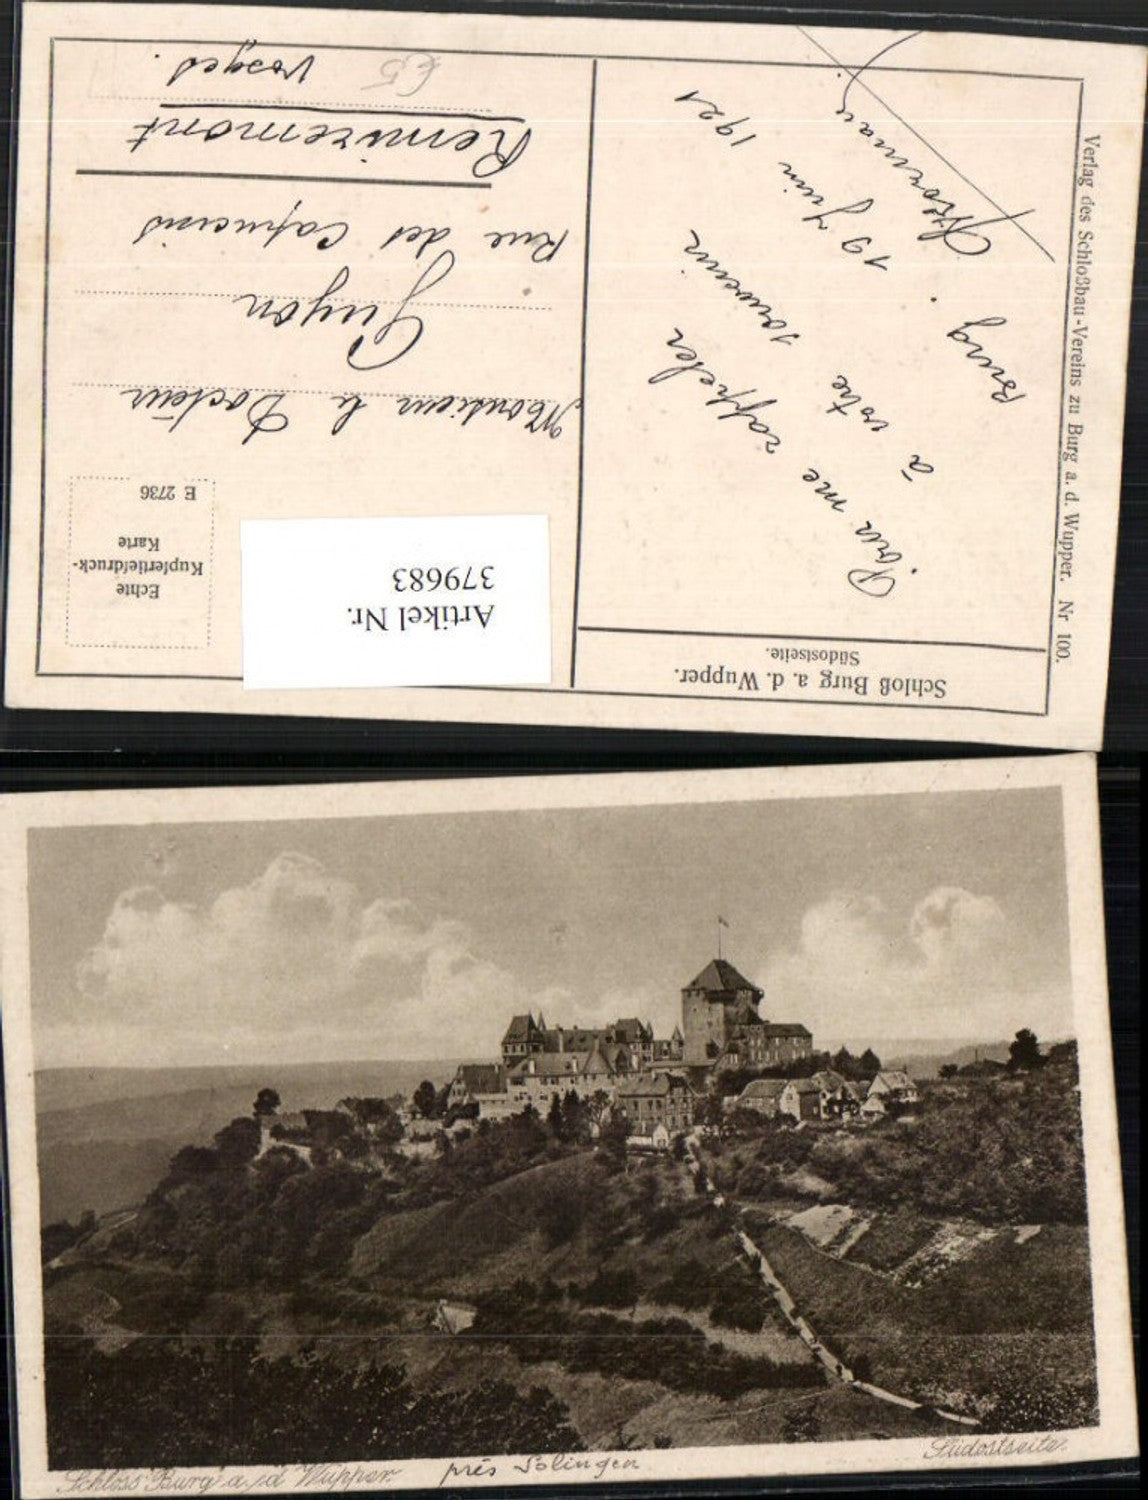 Schloß Burg a. d. Wupper.
Südostseite.
Pour me rappeler
à votre souvenir
Burg . 19 Juin 1921
Verlag des Schloßbau-Vereins zu Burg a. d. Wupper. Nr 100.
Artikel Nr.
379683
Echte
Kupfertiefdruck-
Karte
E 2736
Monsieur le Docteur
Guyon
Rue des Capucins
Remiremont
Vosges.
Schloss Burg a/d Wupper.
près Solingen
Südostseite.